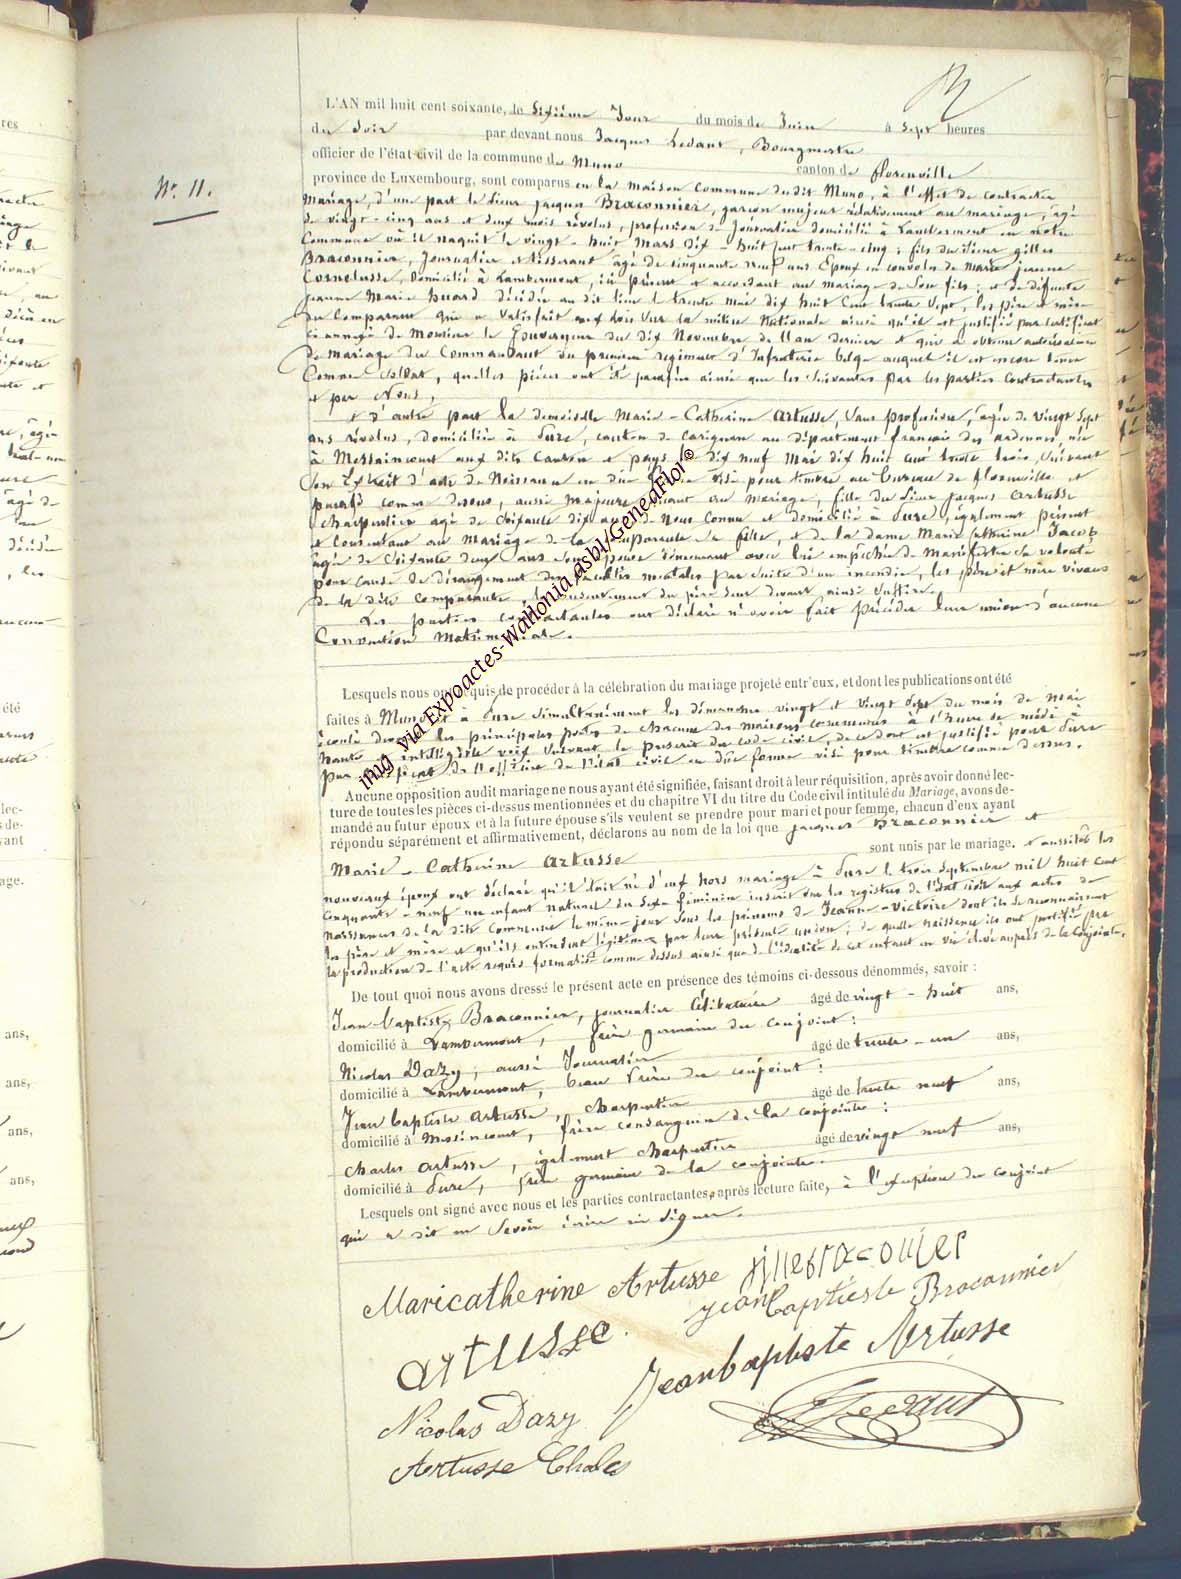 L'AN mil huit cent soixante, le Sixième Jour du mois de Juin à Sept heures
du Soir par devant nous Jacques Ledant, Bourgmestre
officier de l'état civil de la commune de Muno canton de florenville
province de Luxembourg, sont comparus en la maison Commune dudit Muno, à l'effet de contracter
Mariage, d'une part le Sieur jacques Braconnier, garçon majeur relativement au mariage, âgé
de vingt-cinq ans et deux mois révolus, profession de journalier domicilié à Lambermont en notre
Commune où il naquit le vingt-huit Mars dix-huit cent trente-cinq; fils du Sieur gilles
Braconnier, Journalier et tisserant âgé de cinquante neuf ans Epoux en convoles de Marie jeanne
Cornelusse, domicilié à Lambermont, ici présent et accordant au mariage de Son fils; et de défunte
jeanne Marie huard décédée au dit lieu le trente mai dix huit Cent trente Sept, les père et mère
du Comparant qui a Satisfait aux lois Sur la milice Nationale ainsi qu'il est justifié par certificat
ci-annexé de Monsieur le Gouverneur du dix Novembre de l'an dernier et qui a obtenu autorisation
de Mariage du Commandant du premier regiment d'Infanterie belge auquel il est encore
Comme Soldat, quelles pièces ont été parafées ainsi que les Suivantes par les parties Contractantes
et par Nous,
et d'autre part la demoiselle Marie-Catherine Artusse, Sans profession, âgée de vingt Sept
ans révolus, domiciliée à Sure, canton de Carignan au département français des ardennes, née
à Messincourt aux dits Canton et pays le dix neuf Mai dix huit cent trente trois, Suivant
Son Extrait d'acte de Naissance en due forme visé pour timbre au bureau de florenville et
parafé comme dessus, aussi Majeure quant au mariage, fille du Sieur Jacques Artusse
Charpentier agé de Soixante dix ans de Nous Connu et domicilié à Sure, également présent
et Consentant au Mariage de la Comparante Sa fille, et de la dame Marie Catherine Jacob
âgée de Soixante deux ans Son épouse demeurant avec lui empêchée de Manifester Sa volonté
pour cause de dérangement des facultés mentales par Suite d'un incendie, les père et mère vivans
de la dite Comparante, le consentement du père Seul devant ainsi Suffire.
Les parties contractantes ont déclaré n'avoir fait précéder leur union d'aucune
Convention Matrimoniale.
Lesquels nous ont requis de procéder à la célébration du mariage projeté entr'eux, et dont les publications ont été
faites à Muno et à Sure Simultanément les dimanches vingt et vingt Sept du mois de Mai
écoulé devant les principales portes de chacune des maisons communes à l'heure de midi à
haute et intelligible voix Suivant le prescrit du code civil, de ce dont est justifié pour Sure
par certificat de l'officier de l'état civil en due forme visé pour timbre comme dessus.
Aucune opposition audit mariage ne nous ayant été signifiée, faisant droit à leur réquisition, après avoir donné lec-
ture de toutes les pièces ci-dessus mentionnées et du chapitre VI du titre du Code civil intitulé du Mariage, avons de-
mandé au futur époux et à la future épouse s'ils veulent se prendre pour mari et pour femme, chacun d'eux ayant
répondu séparément et affirmativement, déclarons au nom de la loi que jacques Braconnier et
Marie-Catherine Artusse sont unis par le mariage. et aussitôt les
nouveaux époux ont déclaré qu'il était né d'eux hors mariage à Sure le trois Septembre mil huit cent
cinquante-neuf un enfant naturel du Sexe féminin inscrit sur les registres de l'état civil aux actes de
naissances de la dite commune le même jour Sous les prénoms de Jeanne-Victoire dont ils se reconnaissent
les père et mère et qu'ils entendent légitimer par leur présente union; de quelle naissance ils ont justifié par
la production de l'acte requis formalisé comme dessus ainsi que de l'identité de cet enfant en vie élevé auprès de la Conjointe.
De tout quoi nous avons dressé le présent acte en présence des témoins ci-dessous dénommés, savoir :
Jean baptiste Braconnier, journalier Célibataire âgé de vingt-huit ans,
domicilié à Lambermont, frère germain du conjoint:
Nicolas Dazy, aussi Journalier âgé de trente-un ans,
domicilié à Lambermont, beau frère du conjoint:
Jean baptiste Artusse, Charpentier âgé de trente neuf ans,
domicilié à Messincourt, frère consanguin de la conjointe:
Charles Artusse, également Charpentier âgé de vingt neuf ans,
domicilié à Sure, frère germain de la conjointe.
Lesquels ont signé avec nous et les parties contractantes, après lecture faite, à l'exception du conjoint
qui a dit ne Savoir écrire ni Signer.
Maricatherine Artusse gilles braconier
jean Captieste Braconnier
artusse
Jeanbaptiste Artusse
Nicolas Dazy
J Ledant
Artusse Chales
N.° 11.
img via Expoactes-Wallonia asbl/GeneaFloi©